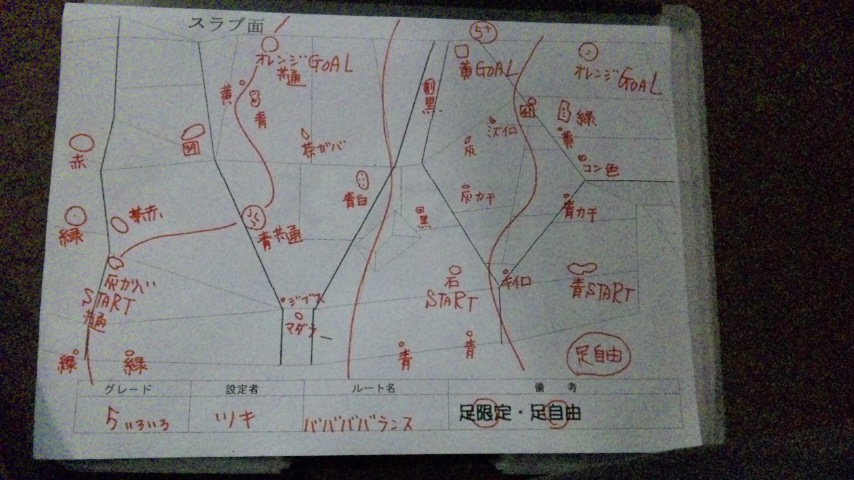 スラブ面
5+
オレンジGOAL
共通
黄GOAL
オレンジGOAL
黄
青
黒
緑
黄
ミズイロ
茶ガバ
灰
コン色
赤
青白
灰カチ
青カチ
黒
緑
茶赤
青共通
灰ガバ
START
共通
ジブス
マダラ
石
START
キイロ
青START
緑
緑
青
青
足自由
グレード
設定者
ルート名
備考
5いろいろ
ツキ
バババババランス
足限定・足自由